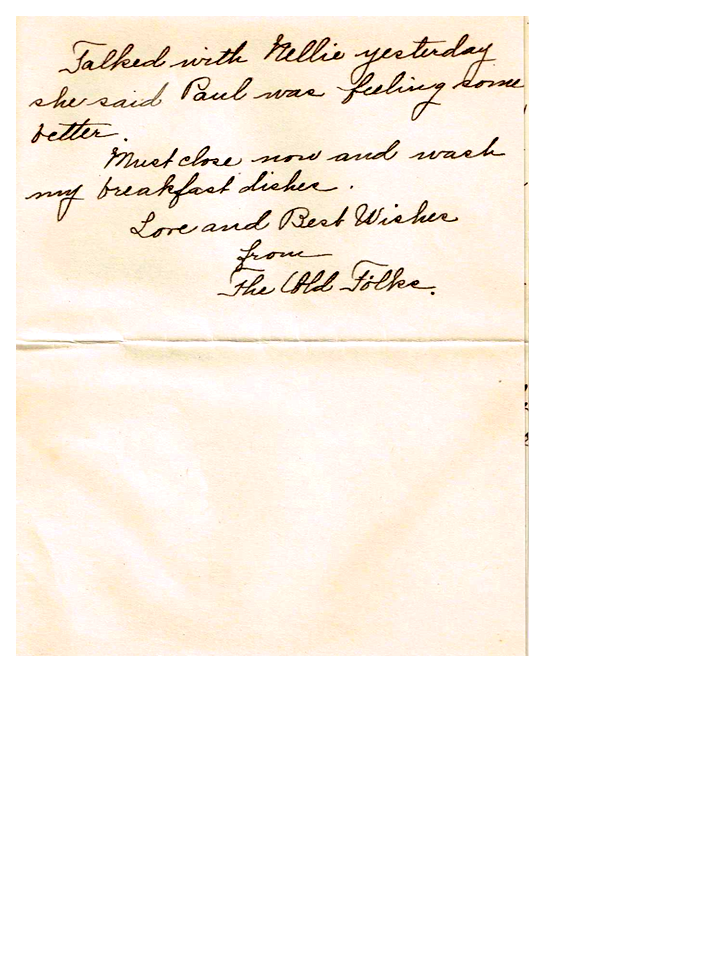 Talked with Nellie yesterday
she said Paul was feeling some
better.
Must close now and wash
my breakfast dishes.
Love and Best Wishes
from
The Old Folks.